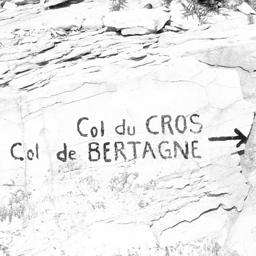 Col du CROS
Col de BERTAGNE